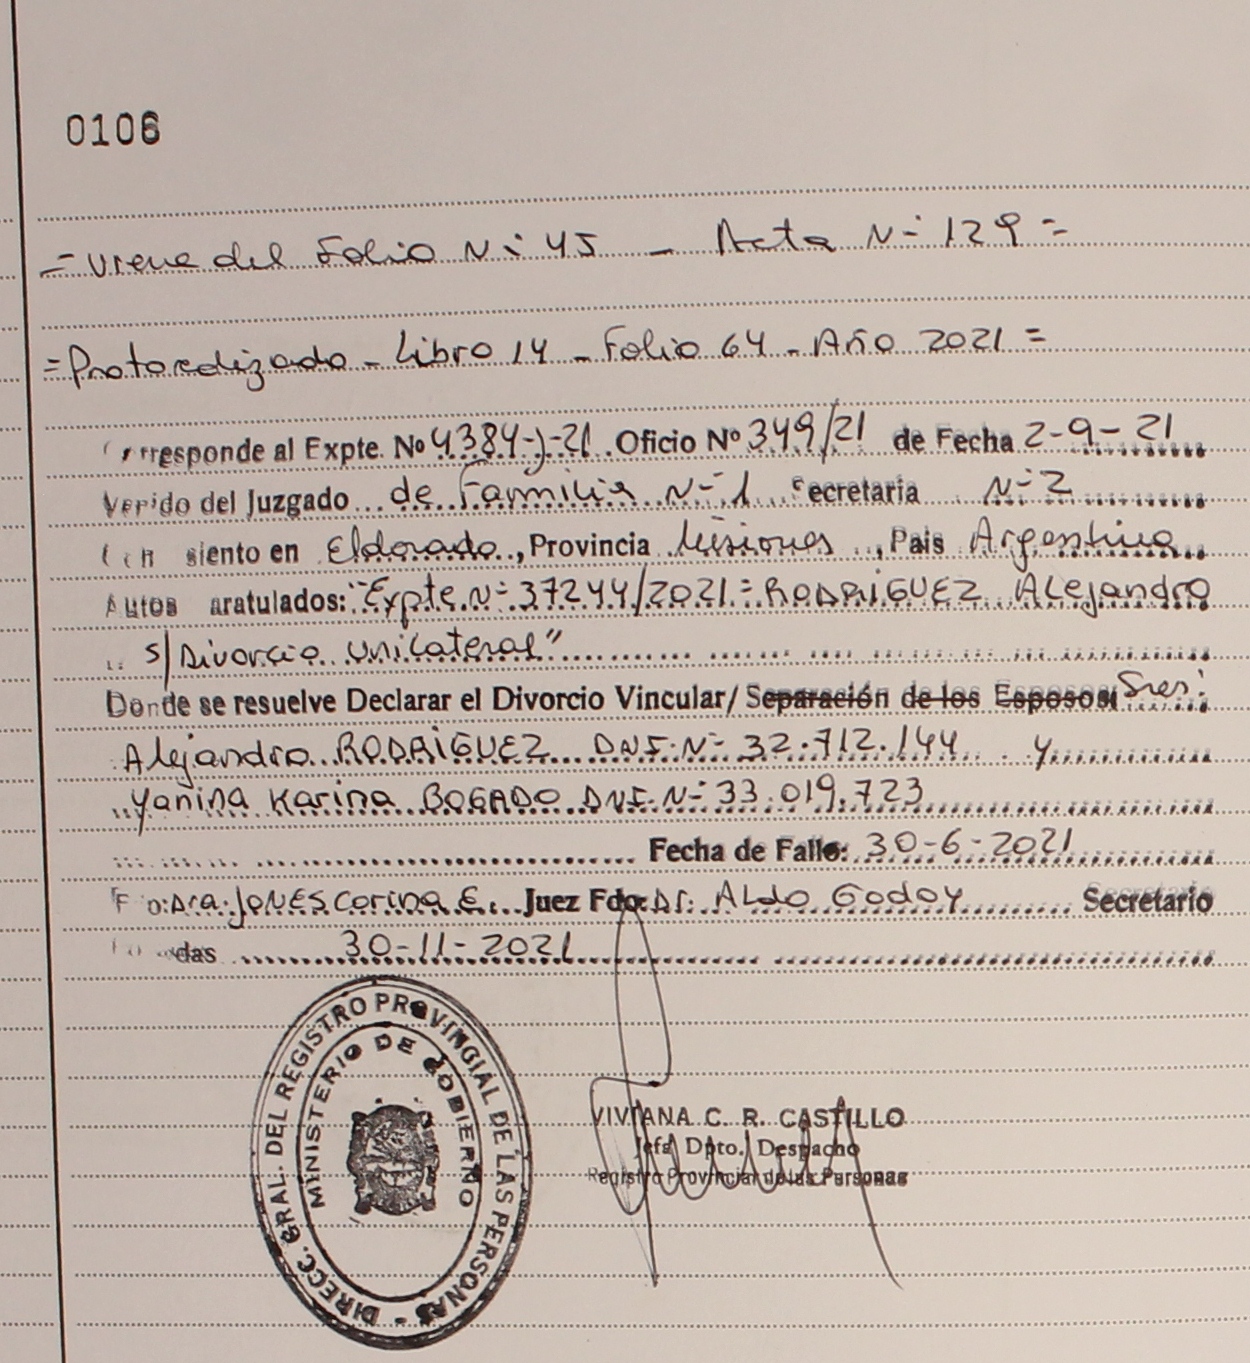 0106
= Viene del Folio N: 45 - Acta N- 129 =
= Protocolizado - Libro 14 - Folio 64 - Año 2021 =
Corresponde al Expte. Nº 4384-J-21 Oficio Nº 349/21 de Fecha 2-9-21
Venido del Juzgado de Familia N- 1 Secretaria N- 2
Con siento en Eldorado, Provincia Misiones, Pais Argentina
Autos aratulados: "Expte. N- 37244/2021 = RODRIGUEZ Alejandro
s/Divorcio unilateral"
Donde se resuelve Declarar el Divorcio Vincular/ Separación de los Esposos Sres:
Alejandro RODRIGUEZ DNI. N- 32.712.144 y
Yanina Karina BOGADO DNI. N- 33.019.723
Fecha de Fallo: 30-6-2021
Fdo: Dra. JONES Corina E. Juez Fdo: Dr. ALDO Godoy Secretario
das 30-11-2021
DIRECC. GRAL. DEL REGISTRO PROVINCIAL DE LAS PERSONAS -
MINISTERIO DE GOBIERNO
VIVIANA C. R. CASTILLO
Jefa Dpto. Despacho
Registro Provincial de las Personas